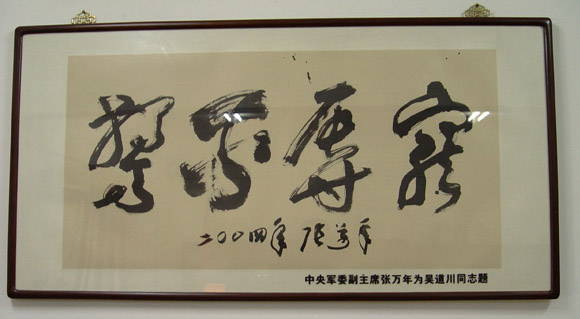 寵辱不驚
二〇〇四年 张万年
中央军委副主席张万年为吴道川同志题